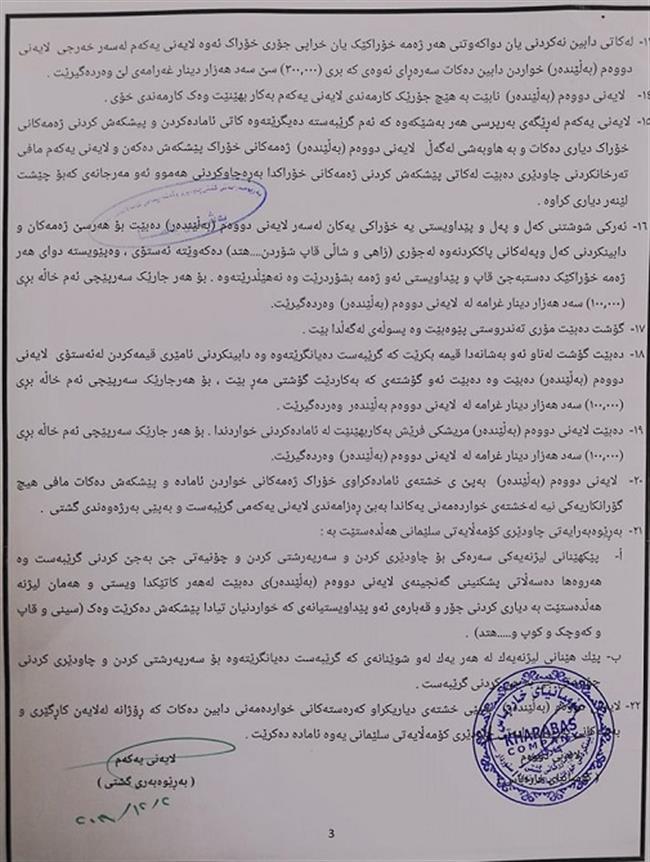 ١٣- لەکاتی دابین نەکردنی یان دواکەوتنی هەر ژەمە خۆراکێک یان خراپی جۆری خۆراک ئەوە لایەنی یەکەم لەسەر خەرجی لایەنی
دووەم (بەڵێندەر) خواردن دابین دەکات سەرەڕای ئەوەی کە بری (٣٠٠,٠٠٠) سێ سەد هەزار دینار غەرامەی لێ وەردەگیرێت .
١٤- لایەنی دووەم (بەڵێندەر) نابێت بە هیچ جۆرێک کارمەندی لایەنی یەکەم بەکار بهێنێت وەک کارمەندی خۆی .
١٥- لایەنی یەکەم لەڕێگەی بەرپرسی هەر بەشێکەوە کە ئەم گرێبەستە دەیگرێتەوە کاتی ئامادەکردن و پیشکەش کردنی ژەمەکانی
خۆراک دیاری دەکات و بە هاوبەشی لەگەڵ لایەنی دووەم (بەڵێندەر) ژەمەکانی خۆراک پێشکەش دەکەن و لایەنی یەکەم مافی
تەرخانکردنی چاودێری دەبێت لەکاتی پێشکەش کردنی ژەمەکانی خۆراکدا بەڕەچاوکردنی هەموو ئەو مەرجانەی کەبۆ چێشت
لێنەر دیاری کراوە .
١٦- ئەرکی شوشتنی کەل و پەل و پێداویستی یە خۆراکی یەکان لەسەر لایەنی دووەم (بەڵێندەر) دەبێت بۆ هەرسێ ژەمەکان و
دابینکردنی کەل وپەلەکانی پاککردنەوە لەجۆری (زاهی و شاڵی قاپ شۆردن....هتد) دەکەوێتە ئەستۆی , وەپێویستە دوای هەر
ژەمە خۆراکێک دەستبەجێ قاپ و پێداویستی ئەو ژەمە بشۆردرێت وە نەهێڵدرێتەوە . بۆ هەر جارێک سەرپێچی ئەم خاڵە بڕی
(١٠٠,٠٠٠) سەد هەزار دینار غرامە لە لایەنی دووەم (بەڵێندەر) وەردەگیرێت.
١٧- گۆشت دەبێت مۆری تەندروستی پێوەبێت وە پسوڵەی لەگەڵدا بێت .
١٨- دەبێت گۆشت لەناو ئەو بەشانەدا قیمە بکرێت کە گرێبەست دەیانگرێتەوە وە دابینکردنی ئامێری قیمەکردن لەئەستۆی لایەنی
دووەم (بەڵێندەر) دەبێت وە دەبێت ئەو گۆشتەی کە بەکاردێت گۆشتی مەڕ بێت ، بۆ هەرجارێک سەرپێچی ئەم خاڵە بڕی
(١٠٠,٠٠٠) سەد هەزار دینار غرامە لە لایەنی دووەم بەڵێندەر وەردەگیرێت .
١٩- دەبێت لایەنی دووەم (بەڵێندەر) مریشکی فرێش بەکاربهێنێت لە ئامادەکردنی خواردندا . بۆ هەر جارێک سەرپێچی ئەم خاڵە بڕی
(١٠٠,٠٠٠) سەد هەزار دینار غرامە لە لایەنی دووەم (بەڵێندەر) وەردەگیرێت.
٢٠- لایەنی دووەم (بەڵێندەر) بەپێ ی خشتەی ئامادەکراوی خۆراک ژەمەکانی خواردن ئامادە و پێشکەش دەکات مافی هیچ
گۆرانکاریەکی نیە لەخشتەی خواردەمەنی یەکاندا بەبێ ڕەزامەندی لایەنی یەکەمی گرێبەست و بەپێی بەرژەوەندی گشتی .
٢١- بەڕێوەبەرایەتی چاودێری کۆمەڵایەتی سلێمانی هەڵدەستێت بە :
أ- پێکهێنانی لیژنەیەکی سەرەکی بۆ چاودێری کردن و سەرپەرشتی کردن و چۆنیەتی جێ بەجێ کردنی گرێبەست وە
هەروەها دەسەڵاتی پشکنینی گەنجینەی لایەنی دووەم (بەڵێندەر)ی دەبێت لەهەر کاتێکدا ویستی و هەمان لیژنە
هەڵدەستێت بە دیاری کردنی جۆر و قەبارەی ئەو پێداویستیانەی کە خواردنیان تیادا پێشکەش دەکرێت وەک (سینی و قاپ
و کەوچک و کوپ و.....هتد) .
ب- پێک هێنانی لیژنەیەک لە هەر یەک لەو شوێنانەی کە گرێبەست دەیانگرێتەوە بۆ سەرپەرشتی کردن و چاودێری کردنی
کردنی گرێبەست .
٢٢- خشتەی دیاریکراو کەرەستەکانی خواردەمەنی دابین دەکات کە ڕۆژانە لەلایەن کارگێری و
چاودێری کۆمەڵایەتی سلێمانی یەوە ئامادە دەکرێت .
KHARABAS
COMPANY
لایەنی یەکەم
( بەڕێوەبەری گشتی )
لایەنی دووەم
3